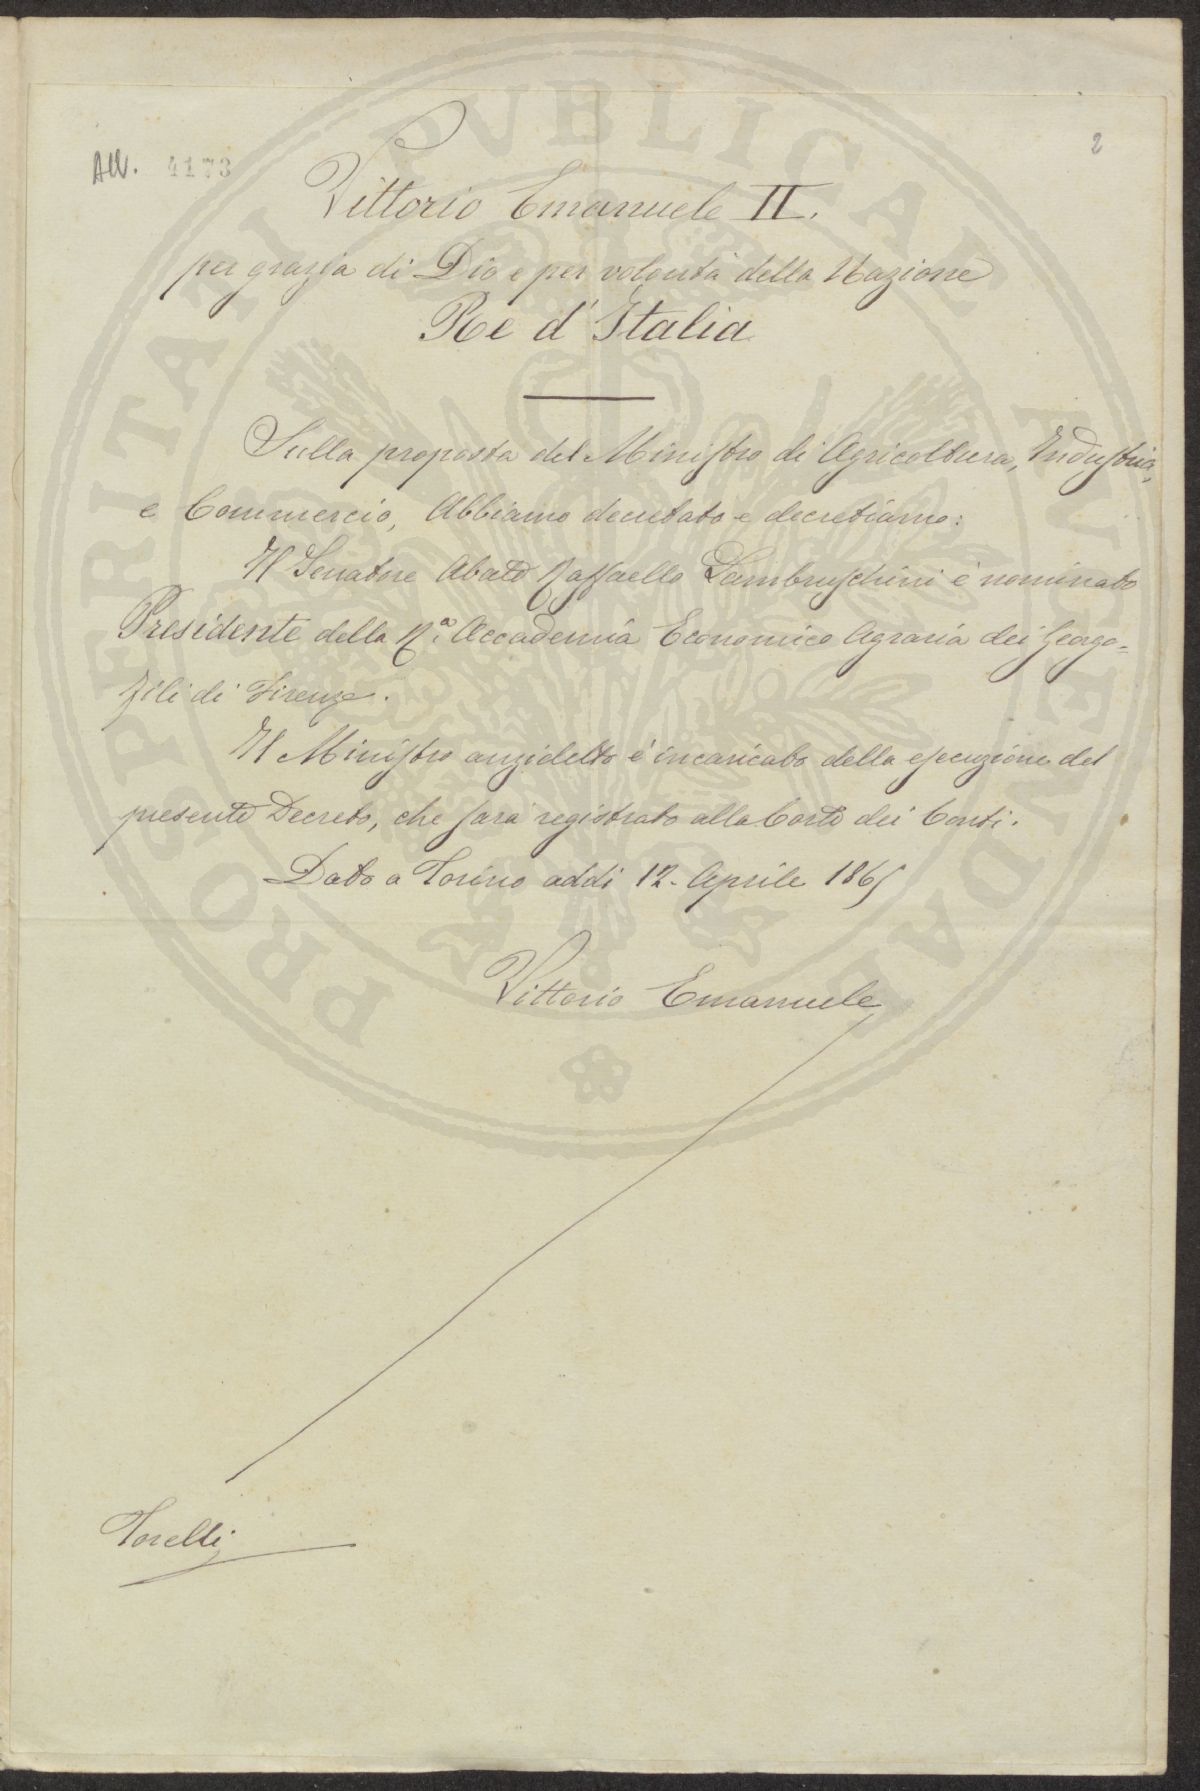 AW. 4173
2
Vittorio Emanuele II.
per grazia di Dio e per volontà della Nazione
Re d'Italia
Sulla proposta del Ministro di Agricoltura, Industria,
e Commercio, Abbiamo decretato e decretiamo:
Il Senatore Abate Raffaello Lambruschini è nominato
Presidente della R.a Accademia Economico Agraria dei Georgo-
fili di Firenze.
Il Ministro anzidetto è incaricato della esecuzione del
presente Decreto, che sarà registrato alla Corte dei Conti.
Dato a Torino addì 12. Aprile 1865
Vittorio Emanuele
Torelli
PROSPERITATI PUBLICAE AUGENDAE